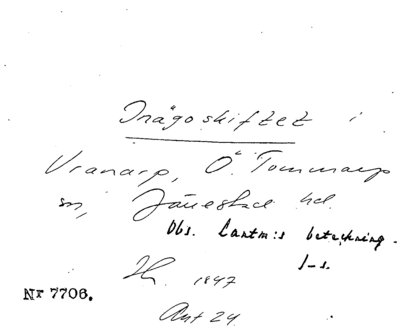 Inägoskiftet i
Vranarp, Ö. Tommarp
sn, Järrestad hd.
Obs. Lantm:s beteckning.
1-s.
1847
Nr 7706.
Ant 24